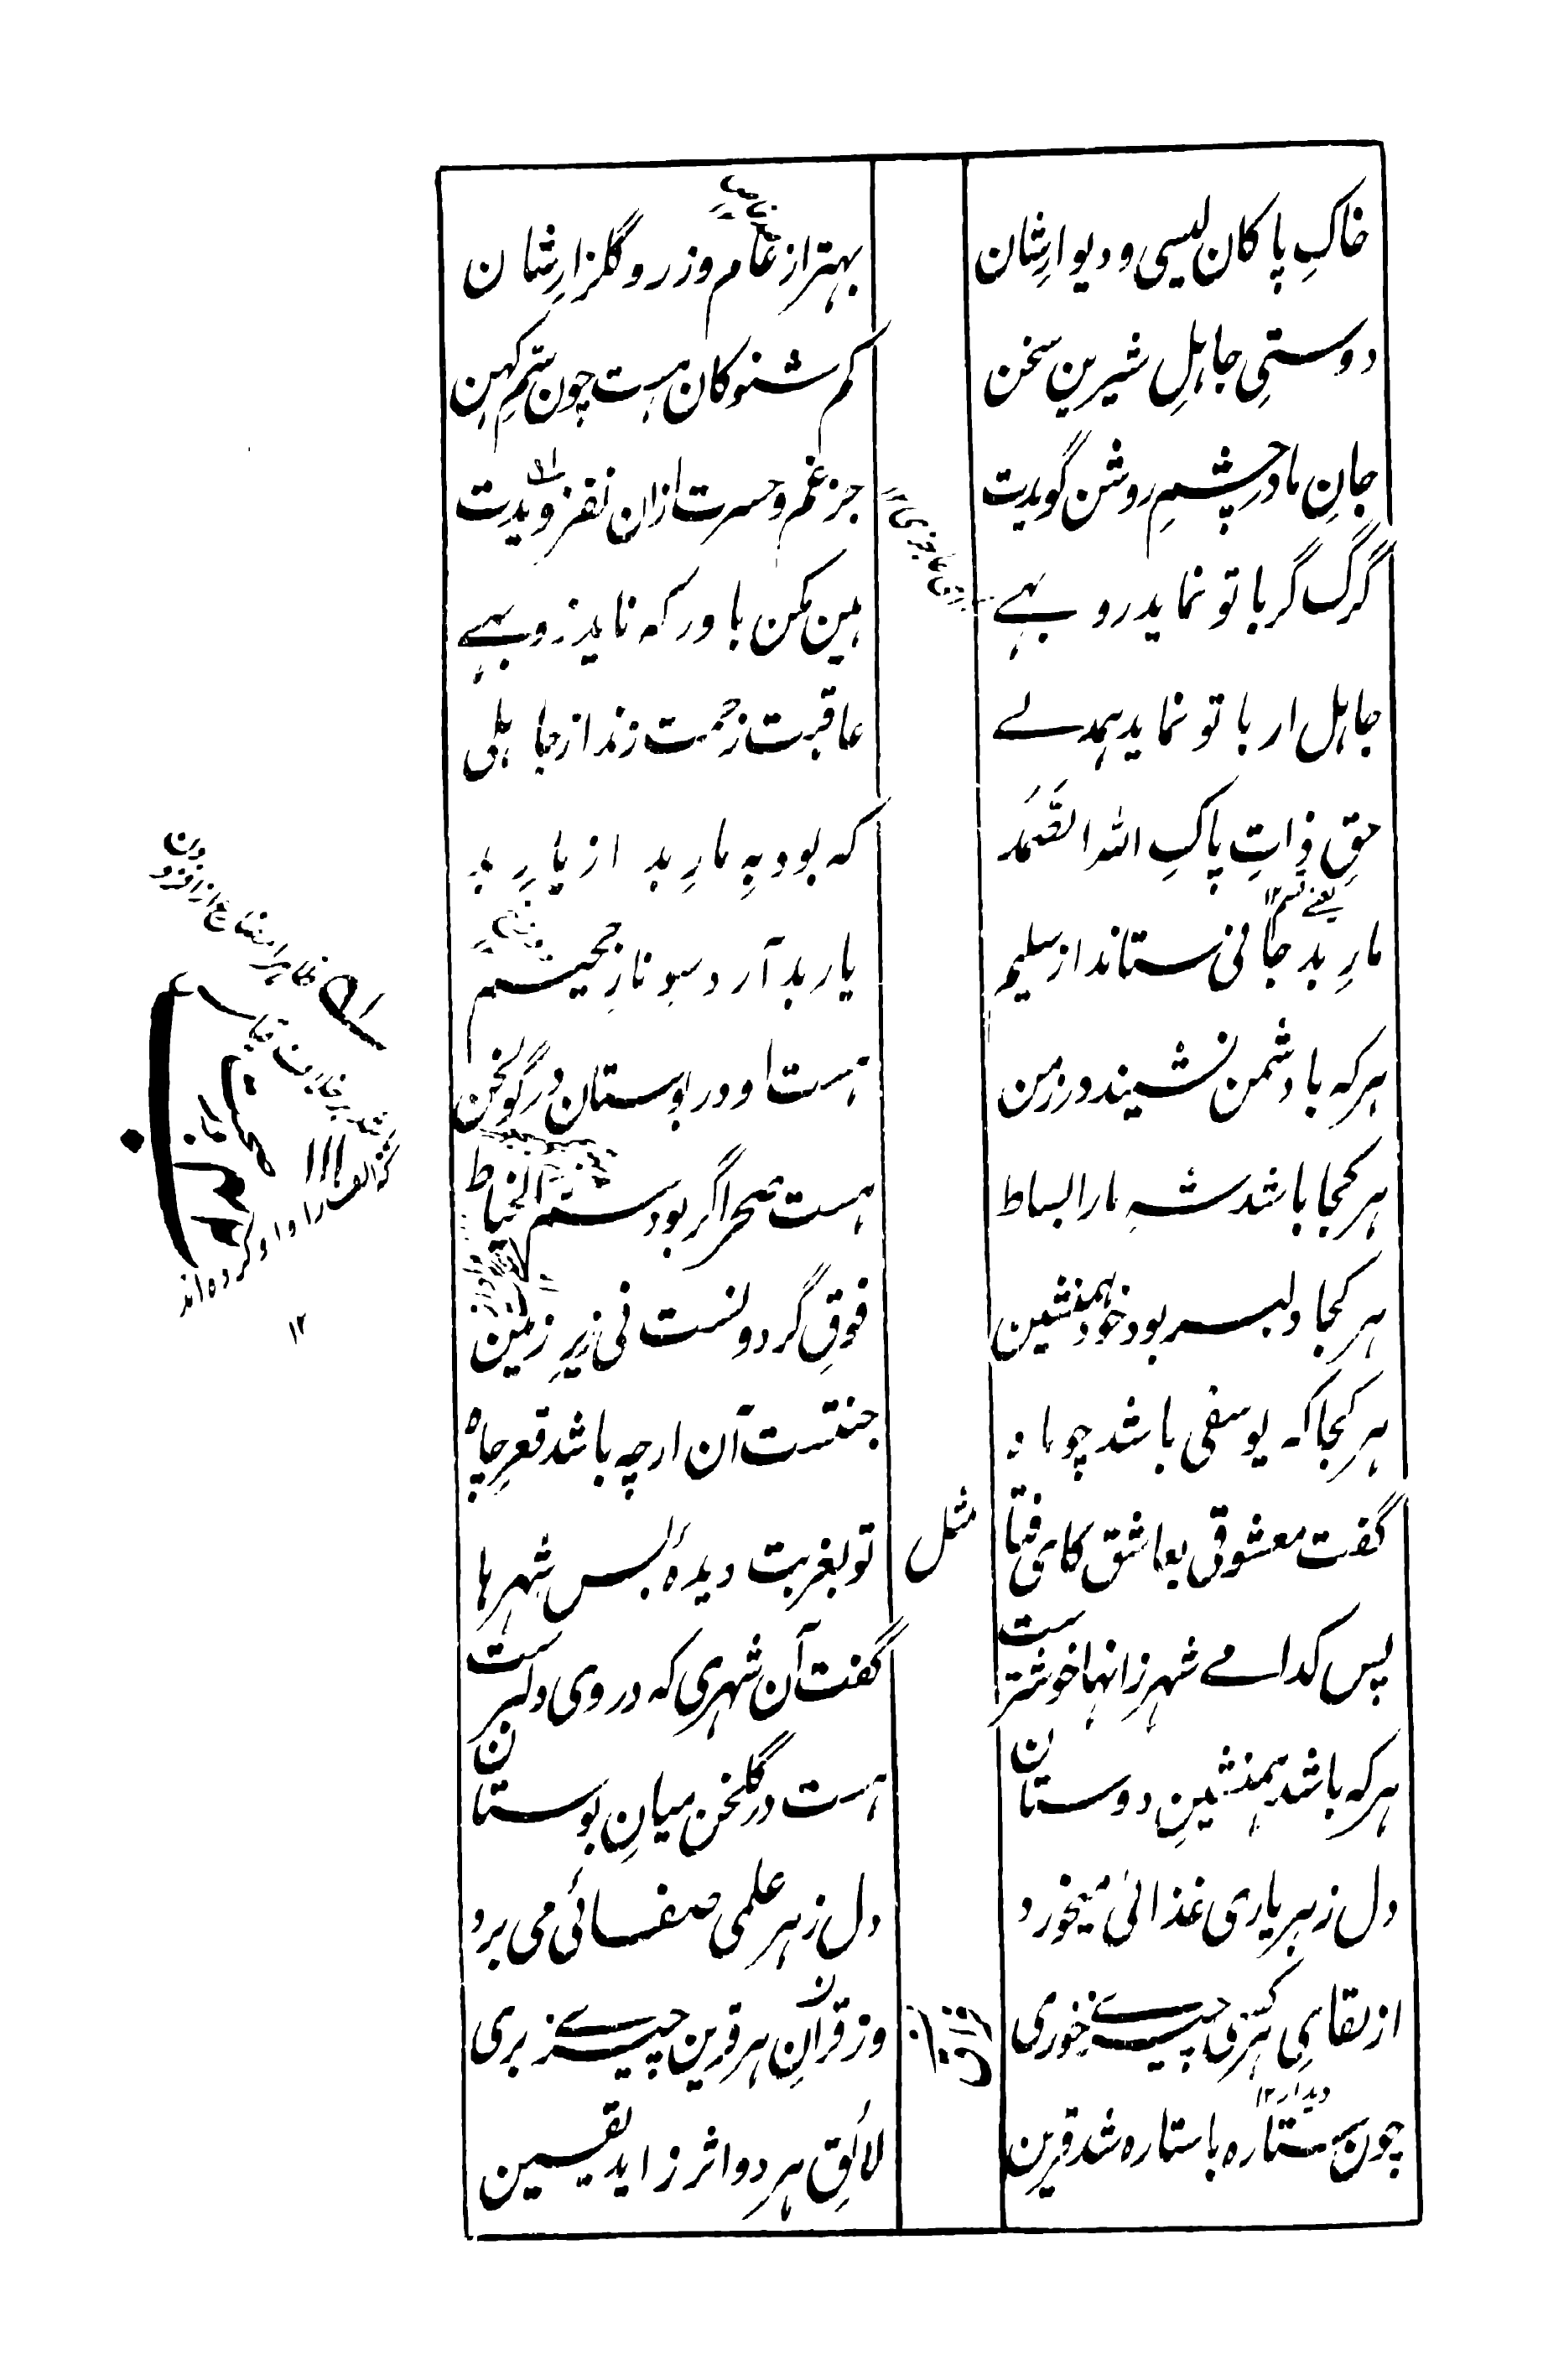 خاکِ پاکان لیسی و دیوارِشان
بهتر از عام و زر و گلزارِشان
دوستیِ جاهلِ شیرین سخن
کم شنو کان هست چون سَمِّ کهن
جانِ مادر چشمِ روشن گویدت
جز غم و حسرت ازان نفزویدت
گرگ گر با تو نماید روبهے
هین مکن باور که ناید زو بهے
جاهل ار با تو نماید همدلے
عاقبت زحمت زند از جاهلی
حقِ ذاتِ پاکِ الله الصَّمَد
که بود بِه مارِ بد از یارِ بد
یعنے قسم ۱۲
مارِ بد جانی ستاند از سلیم
یار بد آرد سوِ نارِ جحیم
هر که با دشمن نشیند در زمن
هست او در بوستان در گولخن
هر کجا باشد شهِ ما را بساط
هست صحرا گر بود سم الخیاط
هر کجا دلبر بود خود همنشین
فوقِ گردونست نی زیرِ زمین
هر کجا که یوسفی باشد چو ماه
جنتست آن ارچه باشد قعرِ چاه
مثل
گفت معشوقی بعاشق کای فتا
تو بغربت دیدهٔ بس شهرها
پس کدامے شهر زانها خوشترست
گفت آن شهری که در وی دلبرست
هر که باشد همنشینِ دوستان
هست در گلخن میانِ بوستان
دل ز هر یاری غذائی میخورد
دل ز هر علمی صفائی می برد
از لقایِ هر کسی چیزے خوری
وز قرانِ هر قرین چیزے بری
دیدار ۱۲
چون ستاره با ستاره شد قرین
لائقِ هر دو اثر زاید یقین